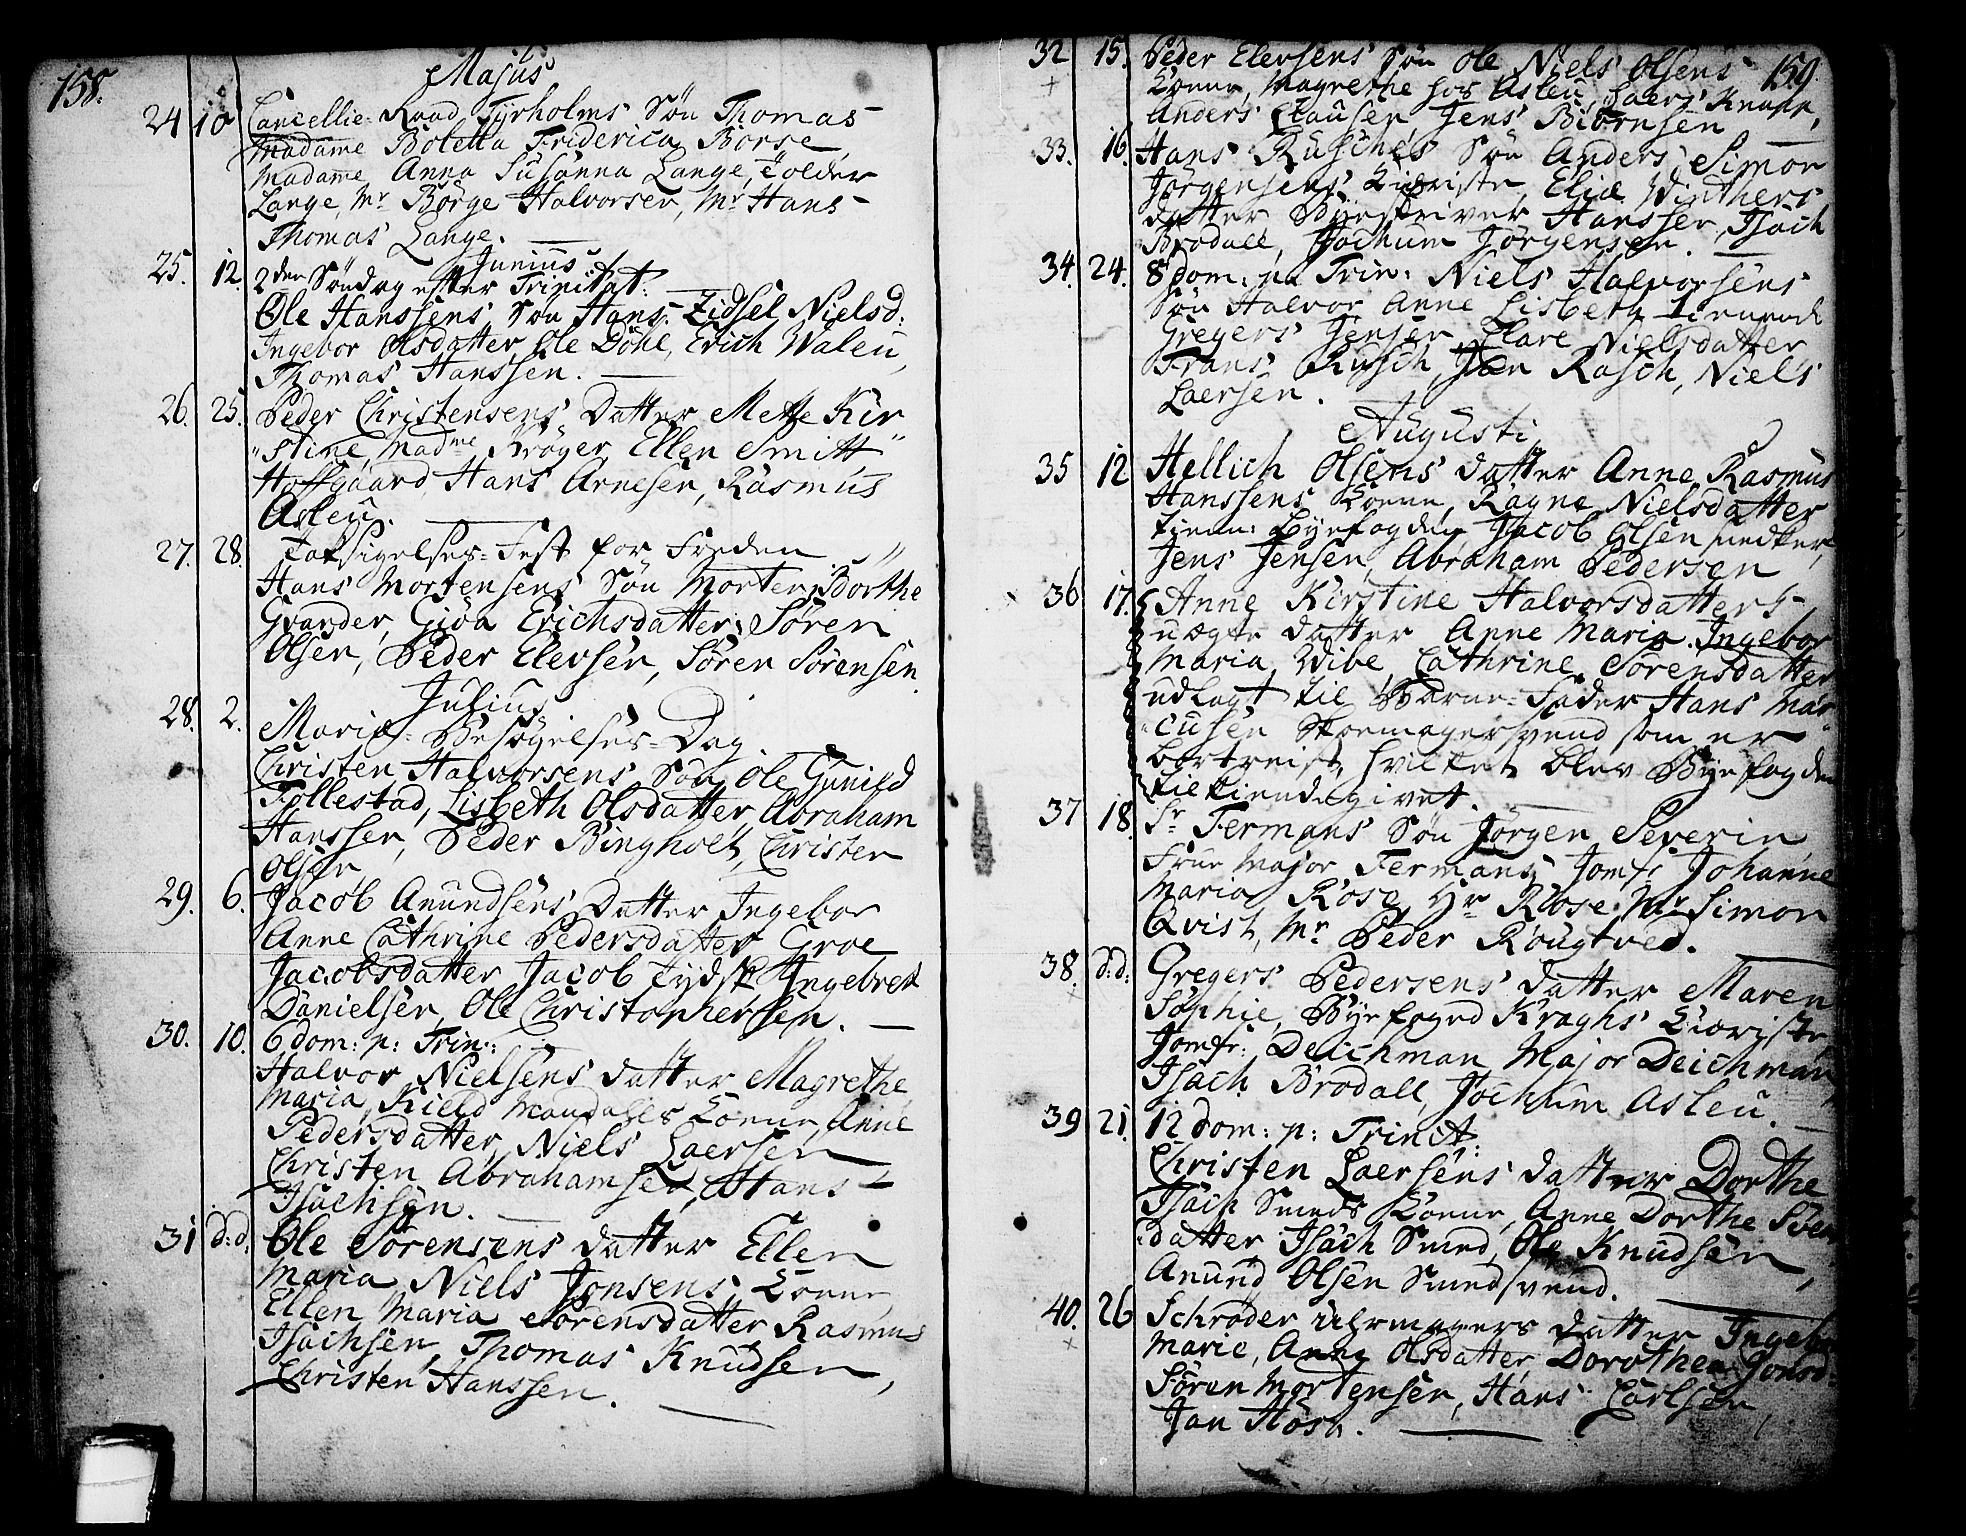 158.
Majus
24 10 Cancellie-Raad Tyrholms Søn Thomas
Madame Boletta Friderica Borse
Madame Anna Susanna Lange, Tolder
Lange, Mr Börge Halvorsen, Mr Hans
Thomas Lange.
Junius
25. 12. 2den Søndag efter Trinitat:
Ole Hanssens Søn Hans. Zidsel Nielsd:
Ingebor Olsdatter Ole Döhl, Erich Waleu,
Thomas Hanssen.
26. 25. Peder Christensens Datter Mette Kir
stine, Madme Krøyer, Ellen Smitt
Hoffgaard, Hans Arnesen, Rasmus
Asleu.
27. 28. Taksigelses-Fest for Freden
Hans Mortensens Søn Morten, Dorthe
Grander, Giöa Erichsdatter, Søren
Olsen, Peder Elevsen, Søren Sørensen.
Julius
28. 2. Mariæ Besøgelses-Dag.
Christen Halvorsens Søn Ole Gunild
Follestad, Lisbeth Olsdatter, Abraham
Hanssen, Peder Bingholt, Christen
Olsen
29. 6. Jacob Anundsens Datter Ingebor
Anne Cathrine Pedersdatter Groe
Jacobsdatter Jacob Tydsk Ingebret
Danielsen, Ole Christophersen.
30. 10. 6 dom: p: Trin:
Halvor Nielsens datter Magrethe
Maria, Kield Mandahls Koene, Anne
Pedersdatter, Niels Laersen
Christen Abrahamsen, Hans
Isachsen.
31 d:d: Ole Sørensens datter Ellen
Maria Niels Jonsens Koene
Ellen Maria Sørensdatter Rasmus
Isachsen, Thomas Knudsen,
Christen Hanssen.
159.
32 15. Peder Elevsens Søn Ole Niels Olsens
Koene, Magrethe hos Asleu, Laers Knapp,
Anders Clausen Jens Biörnsen
33. 16. Hans Rusches Søn Anders Simon
Jörgensens Kiæriste, Eliæ Winthers
datter Byeskriver Hanssen, Isach
Brodall, Jochum Jörgensen.
34. 24. 8 dom: p: Trin: Niels Halvorsens
Søn Halvor Anne Lisbeth tienende
Gregers Jensen, Clare Nielsdatter
Frans Rusch, Jan Rasch, Niels
Laersen.
Augusti
35 12 Hellich Olsens datter Anne, Rasmus
Hanssens Koene, Ragne Nielsdatter
tiene: Byefogden, Jacob Olsen snedker,
Jens Jensen, Abraham Pedersen
36 17. Anne Kirstine Halvorsdatters
uægte datter Anne Maria. Ingebor
Maria, Wibe Cathrine Sørensdatter
udlagt til Barne-Fader Hans Mar
cusen Skoemagersvend som er
bortreist, hvilket blev Byefogden
tilkiendegivet.
37 18. Sr Fermans Søn Jörgen Severin
Frue Major Fermans, Jomfr Johanne
Maria Rose, Hr Rose, Mr Simon
Qvist, Mr Peder Rougtved.
38. d:d: Gregers Pedersens datter Maren
Sophie, Byefoged Kraghs Kiæriste,
Jomfr: Deichman, Major Deichman
Isach Brodall, Jochum Asleu.
39 21. 12 dom: p: Trinit:
Christen Laersens datter Dorthe
Isach Smeds Koene, Anne Dorthe Sven
datter Isach Smed, Ole Knudsen,
Anund Olsen Smedsvend.
40. 26 Schrøder Uhrmagers datter Ingebor
Marie, Anne Olsdatter, Dorothea Jonsd:
Søren Mortensen, Hans Carlsen,
Jan